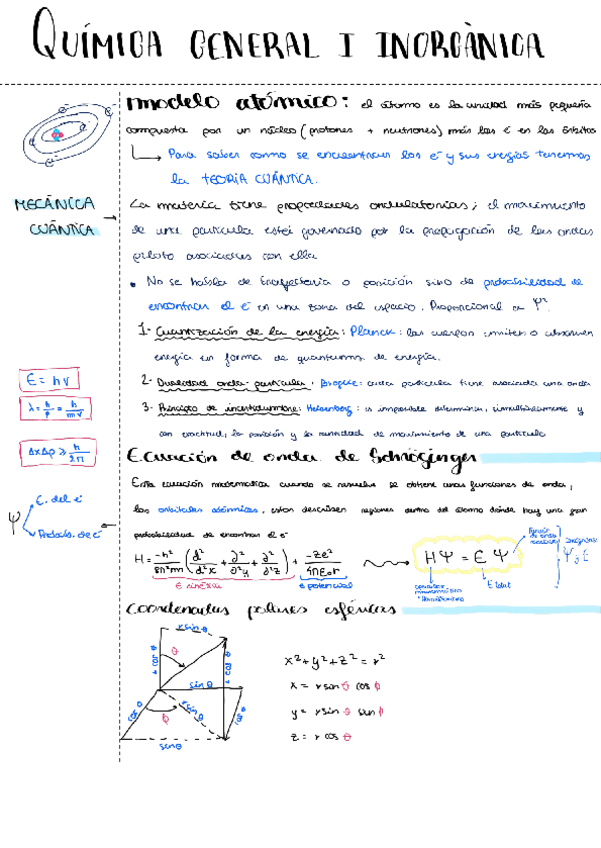 QUÍMICA GENERAL I INORGÀNICA
modelo atómico: el átomo es la unidad más pequeña
compuesta por un núcleo (protones + neutrones) más los e⁻ en los órbitos
Para saber como se encuentran los e⁻ y sus energías tenemos
la TEORÍA CUÁNTICA.
MECÁNICA
CUÁNTICA
La materia tiene propiedades ondulatorias; el movimiento
de una partícula está governado por la propagación de las ondas
piloto asociadas con ella
• No se habla de trayectoria o posición sino de probabilidad de
encontrar el e⁻ en una zona del espacio. Proporcional a Ψ²
1- Cuantización de la energía: Planck: los cuerpos emiten o absorben
energía en forma de quantums de energía.
2- Dualidad onda-partícula: Broglie: cada partícula tiene asociada una onda
3- Principio de incertidumbre: Heisenberg: es imposible determinar, simultáneamente y
con exactitud, la posición y la cantidad de movimiento de una partícula
E = hν
λ = h/p = h/mv
ΔxΔp ≥ h/2π
Ecuación de onda de Schröginger
Esta ecuación matemática cuando se resuelve se obtiene unas funciones de onda,
los orbitales atómicos, estos describen regiones dentro del átomo donde hay una gran
probabilidad de encontrar el e⁻
Ψ
E. del e⁻
Probab. de e⁻
H = -h²/8π²m (d²/d²x + d²/d²y + d²/d²z) + -Ze²/4πε₀r
E cinética
E potencial
HΨ = EΨ
E total
Ψ y E
Coordenadas polares esféricas
r sin θ
r cos θ
θ
r cos θ
sin θ
cos θ
r sin θ
ϕ
cos θ
sen θ
x² + y² + z² = r²
x = r san θ cos ϕ
y = r sin θ sun ϕ
z = r cos θ